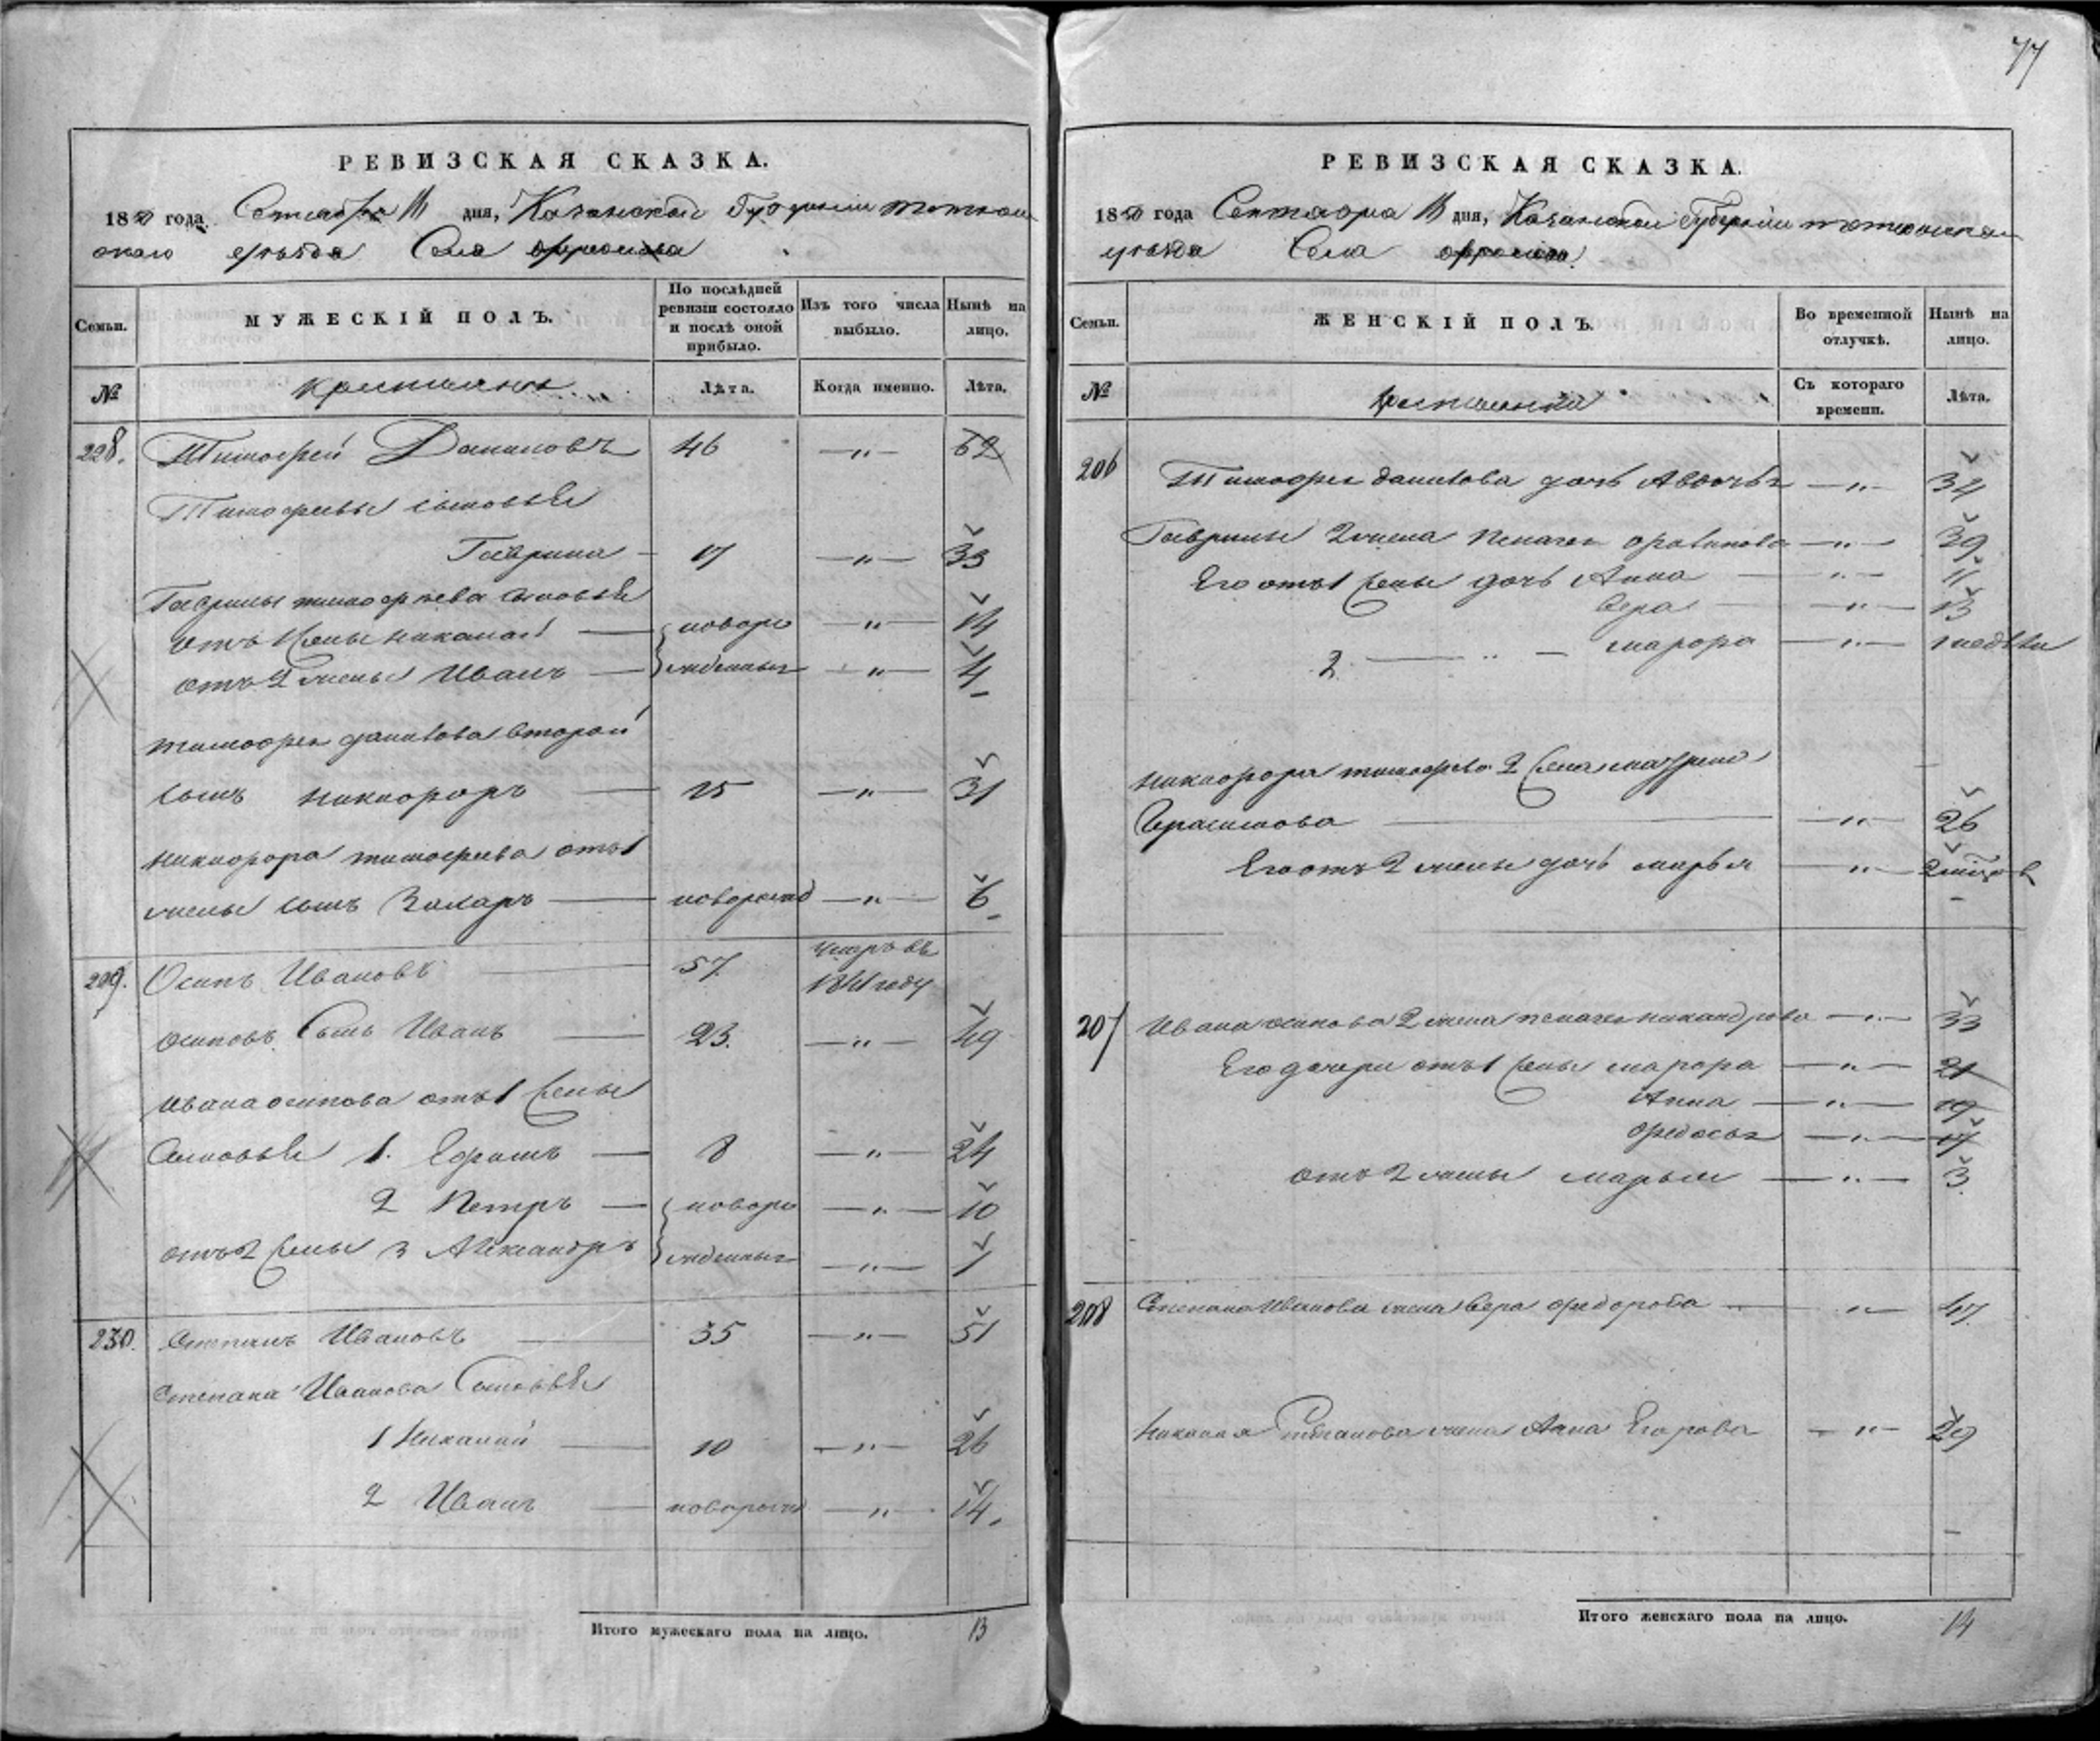 77
РЕВИЗСКАЯ СКАЗКА.
1850 года Сентября 11 дня, Казанской Губернии тетюш
скаго уѣзда Села
Семьи. МУЖЕСКІЙ ПОЛЪ. По послѣдней ревизіи состояло и послѣ оной прибыло. Изъ того числа выбыло. Нынѣ на лицо.
№ крестьяне Лѣта. Когда именно. Лѣта.
228. Тимофей Даниловъ 46 —"— 62
Тимофеевы сыновья
Гаврила — 17 —"— 33
Гаврилы тимофѣева сыновья
отъ 1 жены николай — новоро —"— 14
отъ 2 жены Иванъ — жденныя —"— 4
тимофея данилова второй
сынъ никифоръ — 15 —"— 31
никифора тимофеева отъ 1
жены сынъ Захаръ — новорожд —"— 6
209. Осипъ Ивановъ — 57. умеръ въ
1841 году
осиповъ сынъ Иванъ — 23. —"— 49
ивана осипова отъ 1 жены
сыновья 1. Ефимъ — 8 —"— 24
2 Петръ — новоро —"— 10
отъ 2 жены 3 Александръ жденныя —"— 1
230. Степанъ Ивановъ — 35 —"— 51
Степана Иванова Сыновья
1 Николай — 10 —"— 26
2 Иванъ — новорожд —"— 14.
Итого мужескаго пола на лицо. 13
РЕВИЗСКАЯ СКАЗКА.
1850 года Сентября 11 дня, Казанской Губернии тетюшскаго
уѣзда Села
Семьи. ЖЕНСКІЙ ПОЛЪ. Во временной отлучкѣ. Нынѣ на лицо.
№ Съ котораго времени. Лѣта.
206 Тимофея данилова дочь Авдотья —"— 34
Гаврилы 2 жена Пелагея —"— 39
Его отъ 1 жены дочь Анна — —"— 11
Вера — —"— 13
2. — " — марфа —"— 1 недѣли
никифора тимофеева 2 жена
Герасимова — —"— 26
Его отъ 2 жены дочь марья — —"— 2
207 Ивана осипова 2 жена пелагея никандрова —"— 33
Его дочери отъ 1 жены марфа —"— 21
Анна —"— 19
федосья —"— 17
отъ 2 жены марья —"— 3.
208 Степана Иванова жена Вера федорова — —"— 47.
Николая Степанова жена Анна Егорова —"— 29
Итого женскаго пола на лицо. 14